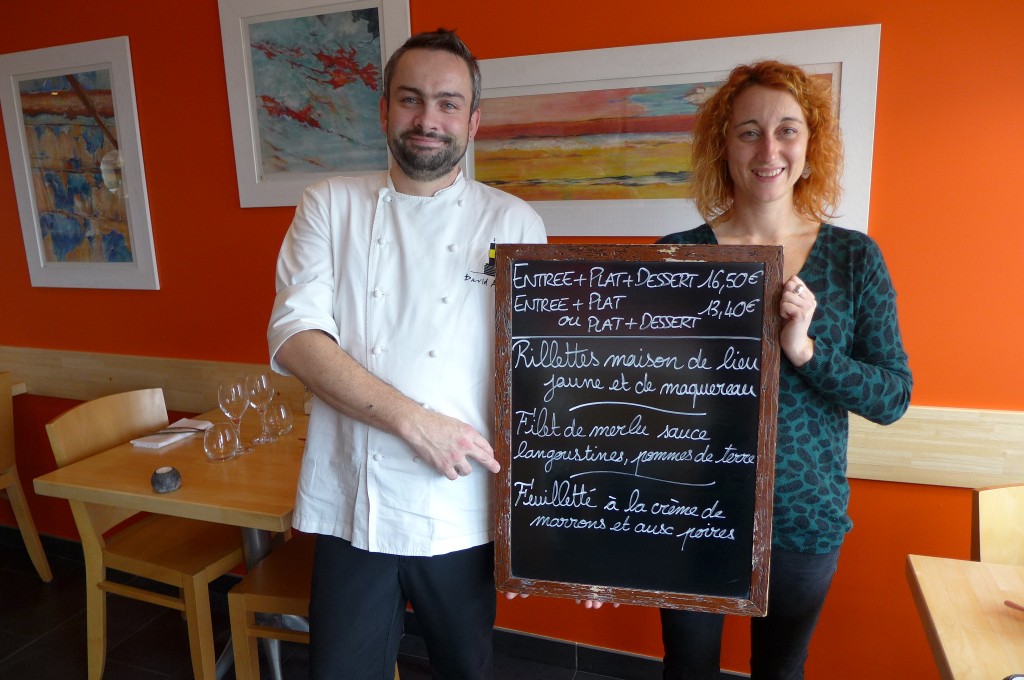 David
ENTREE + PLAT + DESSERT 16,50€
ENTREE + PLAT 13,40€
ou PLAT + DESSERT
Rillettes maison de lieu
jaune et de maquereau
Filet de merlu sauce
langoustines, pommes de terre
Feuilletté à la crème de
marrons et aux poires